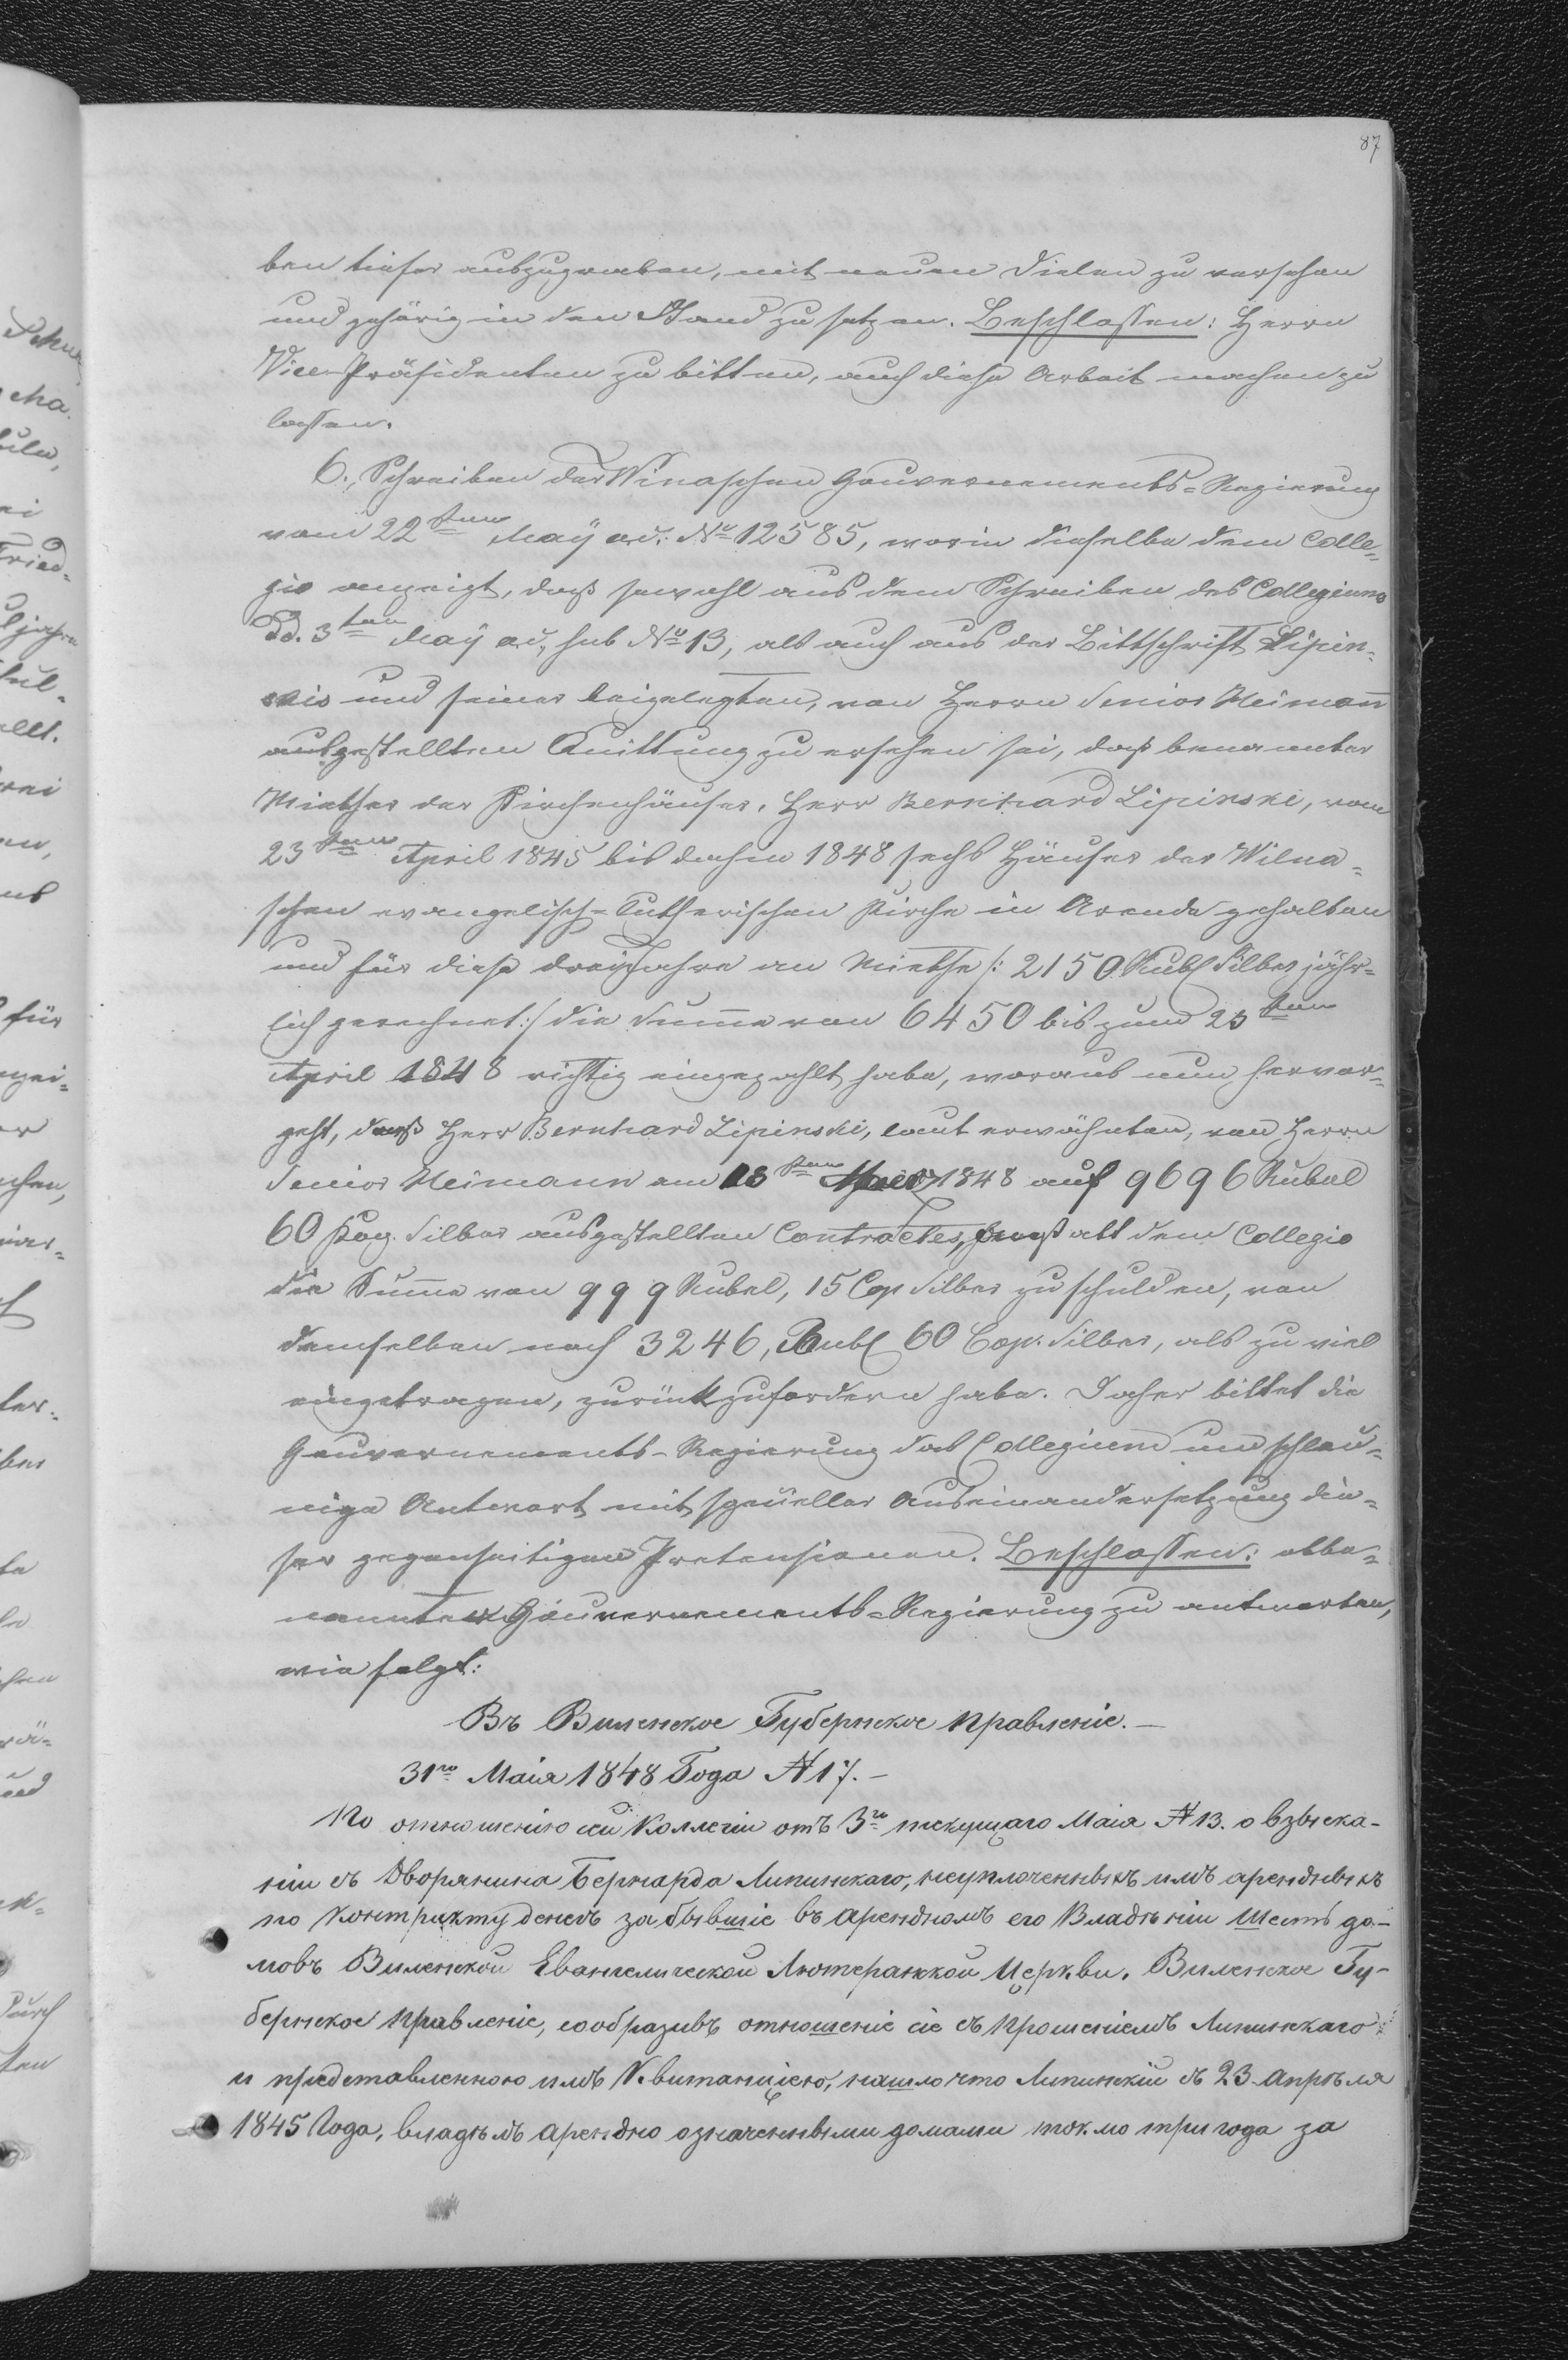 87
ben tiefer auszugraben, mit neuen Dielen zu versehen
und gehörig in den Stand zu setzen. Beschlossen: Herrn
Vice-Präsidenten zu bitten, auch diese Arbeit machen zu
lassen.
6., Schreiben der Wilnaschen Gouvernements-Regierung
vom 22sten Maÿ a. c. No 12585, worin dieselbe dem Colle-
gio anzeigt, daß sowohl aus dem Schreiben des Collegiums
dd. 3ten Maÿ a. c., sub No 13, als auch aus der Bittschrift Lipin-
skis und seiner beigelegten, von Herrn Senior Heimann
ausgestellten Quittung zu ersehen sei, daß benannter
Miether der Kirchenhäuser, Herr Bernhard Lipinski, vom
23sten April 1845 bis dahin 1848 sechs Häuser der Wilna-
schen evangelisch-Lutherischen Kirche in Arende gehalten
und für diese drei Jahre an Miethe /: 2150 Rubl Silber jähr-
lich gerechnet :/ die Summe von 6450 bis zum 23sten
April 1848 richtig eingezahlt habe, woraus nun hervor-
geht, daß Herr Bernhard Lipinski, laut erwähnten, von Herrn
Senior Heimann am 1848 auf 9696 Rubel
60 Kop. Silber ausgestellten Contractes, anstatt dem Collegio
die Summe von 999 Rubel, 15 Cop Silber zu schulden, von
demselben noch 3246, Rubl 60 Cop. Silber, als zu viel
eingetragen, zurückzufordern habe. Daher bittet die
Gouvernements-Regierung das Collegium um schleu-
nige Antwort mit specieller Auseinandersetzung die-
ser gegenseitigen Pretensionen. Beschlossen: obbe-
nannter Gouvernements-Regierung zu antworten,
wie folgt:
Въ Виленское Губернское Правленіе.—
31го Маія 1848 Года № 17.—
По отношенію сей Коллегіи отъ 3го текущаго Маія № 13. о взыска-
ніи съ Дворянина Бернарда Липинскаго, неуплоченныхъ имъ арендныхъ
по контракту денегъ за бывшіе въ арендномъ его Владѣніи шесть до-
мовъ Виленской Евангелической Лютеранской Церкви. Виленское Гу-
бернское Правленіе, сообразивъ отношеніе сіе съ прошеніемъ Липинскаго
и представленною имъ Квитанціею, нашло что Липинскій съ 23 Апрѣля
1845 Года, владѣлъ арендно означенными домами токмо три года за